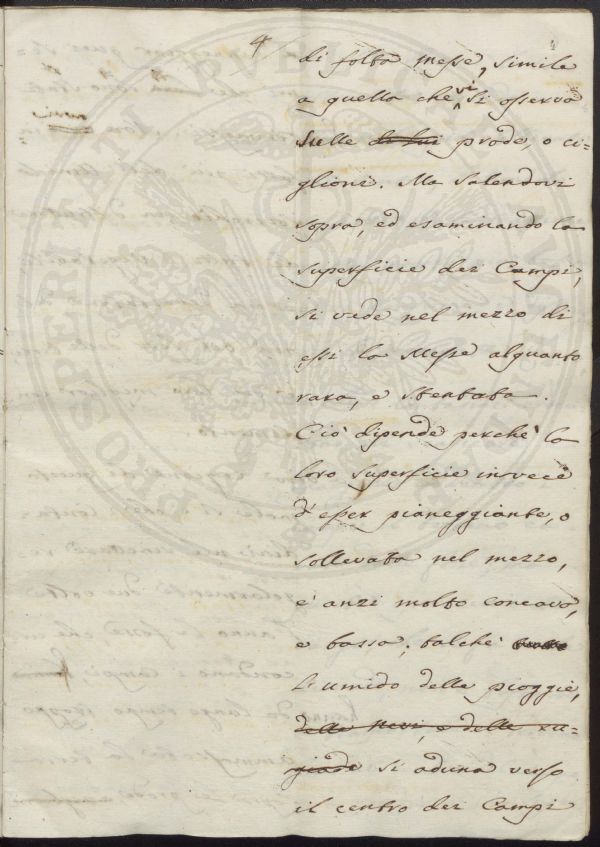 4
di folta messe, simile
a quella che vi si osserva
sulle di lui prode, o ci=
glioni. Ma salendovi
sopra, ed esaminando la
superficie dei Campi,
si vede nel mezzo di
essi la Messe alquanto
rara, e stentata.
Ciò dipende perchè la
loro superficie invece
d'esser pianeggiante, o
sollevata nel mezzo,
è anzi molto concava,
e bassa; talchè
L'umido delle pioggie,
delle Nevi, e delle ru=
giade si aduna verso
il centro dei Campi